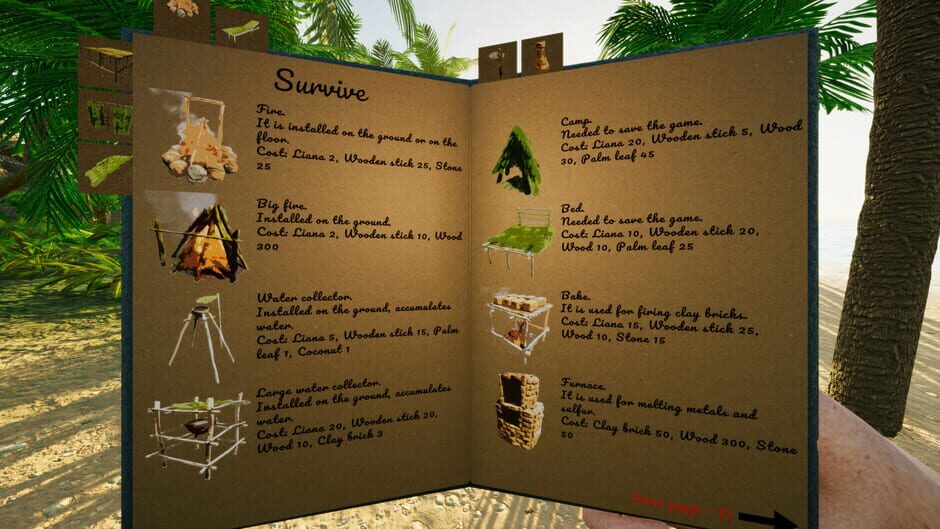 Survive
Fire.
It is installed on the ground or on the
floor.
Cost: Liana 2, Wooden stick 25, Stone
25
Big fire.
Installed on the ground.
Cost: Liana 2, Wooden stick 10, Wood
300
Water collector.
Installed on the ground, accumulates
water.
Cost: Liana 5, Wooden stick 15, Palm
leaf 1, Coconut 1
Large water collector.
Installed on the ground, accumulates
water.
Cost: Liana 20, Wooden stick 20,
Wood 10, Clay brick 3
Camp.
Needed to save the game.
Cost: Liana 20, Wooden stick 5, Wood
30, Palm leaf 45
Bed.
Needed to save the game.
Cost: Liana 10, Wooden stick 20,
Wood 10, Palm leaf 25
Bake.
It is used for firing clay bricks.
Cost: Liana 15, Wooden stick 25,
Wood 10, Stone 15
Furnace.
It is used for melting metals and
sulfur.
Cost: Clay brick 50, Wood 300, Stone
50
Next page -